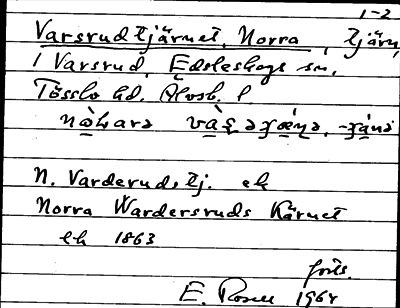 1-2
Varsrudtjärnet, Norra, tjärn,
i Varsrud, Edsleskogs sn,
Tössbo hd. Älvsb. l
N. Varderuds tj. ek
Norra Wardersruds Kärnet
ek 1863
forts.
E. Rosell 1964